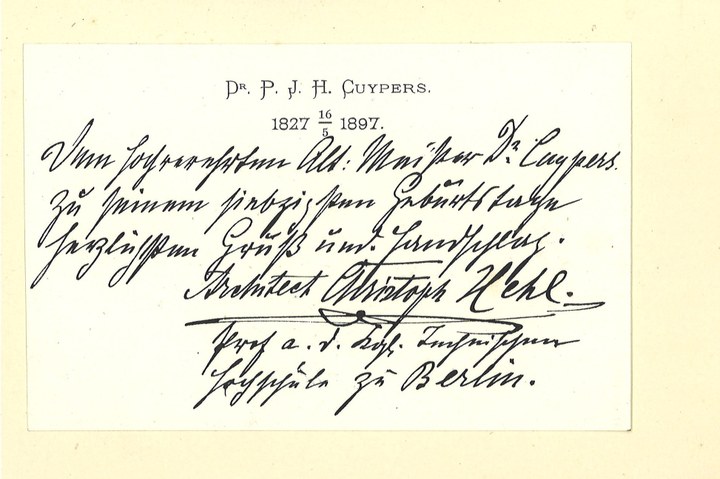 Dr. P. J. H. CUYPERS.
1827 16/5 1897.
Dem hochverehrten Alt: Meister Dr. Cuypers.
zu seinem siebzigsten Geburtstage
herzlichsten Gruß und. Handschlag.
Architect Christoph Hehl.
Prof a. d. Kgl. Technischen
Hochschule zu Berlin.